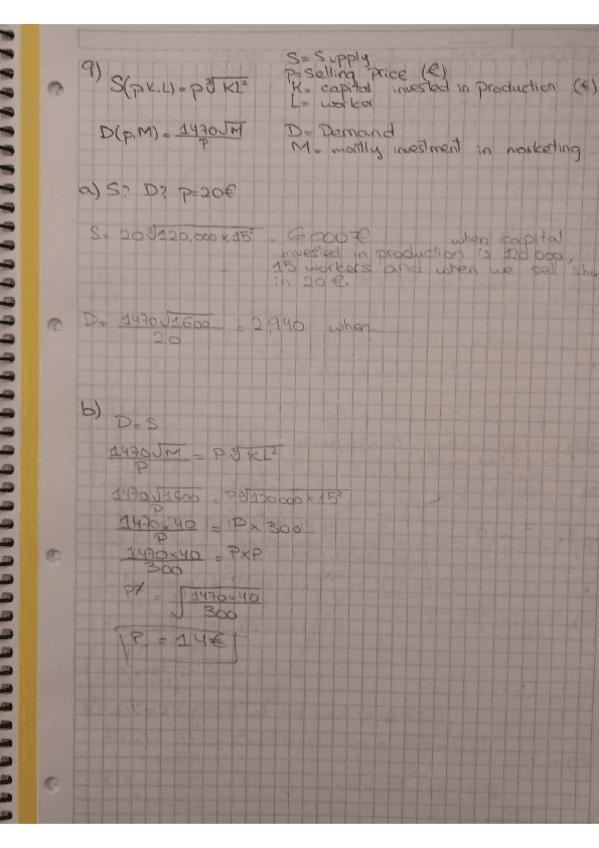 9) S(p,K,L)=p∛KL² S=Supply
P=Selling Price (€)
K= capital invested in production (€)
L= worker
D(p,M)= 1470√M / P D=Demand
M= montly investment in marketing
a) S? D? p=20€
S= 20∛120,000×15² = 6000€ when capital
invested in production is 120000,
15 workers and when we sell
in 20€.
D= 1470√1600 / 20 = 2.940 when
b) D=S
1470√M / P = P∛KL²
1470√1600 / P = P∛120000×15²
1470×40 / P = P×300
1470×40 / 300 = P×P
P = √1470×40 / 300
P = 14€